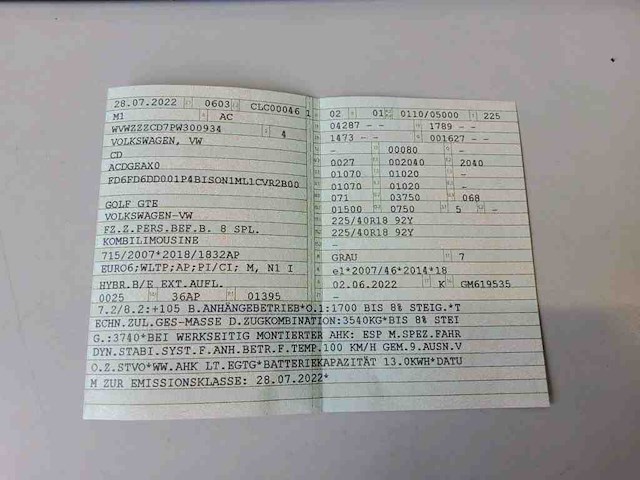 28.07.2022 0603 CLC00046 1
M1 AC
WVWZZZCD7PW300934 4
VOLKSWAGEN, VW
CD
ACDGEAX0
FD6FD6DD001P4BISON1ML1CVR2B00
GOLF GTE
VOLKSWAGEN-VW
FZ.Z.PERS.BEF.B. 8 SPL.
KOMBILIMOUSINE
715/2007*2018/1832AP
EURO6;WLTP;AP;PI/CI; M, N1 I
HYBR.B/E EXT.AUFL.
0025 36AP 01395
02 01 0110/05000 225
04287 - - 1789 - -
1473 - - 001627 - -
- 00080 -
0027 002040 2040
01070 01020 -
01070 01020 -
071 03750 068
01500 0750 5 -
225/40R18 92Y
225/40R18 92Y
-
GRAU 7
e1*2007/46*2014*18
02.06.2022 K GM619535
7.2/8.2:+105 B.ANHÄNGEBETRIEB*O.1:1700 BIS 8% STEIG.*T
ECHN.ZUL.GES-MASSE D.ZUGKOMBINATION:3540KG*BIS 8% STEI
G.:3740*BEI WERKSEITIG MONTIERTER AHK: ESP M.SPEZ.FAHR
DYN.STABI.SYST.F.ANH.BETR.F.TEMP.100 KM/H GEM.9.AUSN.V
O.Z.STVO*WW.AHK LT.EGTG*BATTERIEKAPAZITÄT 13.0KWH*DATU
M ZUR EMISSIONSKLASSE: 28.07.2022*